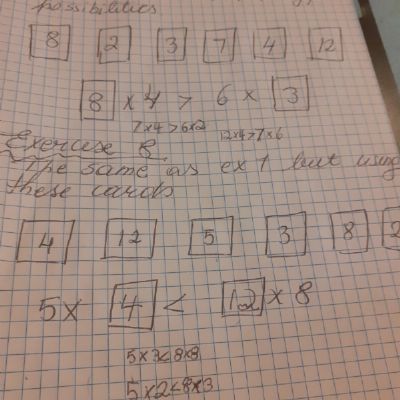 possibilities
8 2 3 7 4 12
8 x 4 > 6 x 3
7x4>6x2 12x4>7x6
Exercise 8.
The same as ex 1 but using
these cards
4 12 5 3 8 2
5x 4 < 12 x 8
5x3<8x8
5x2<8x3